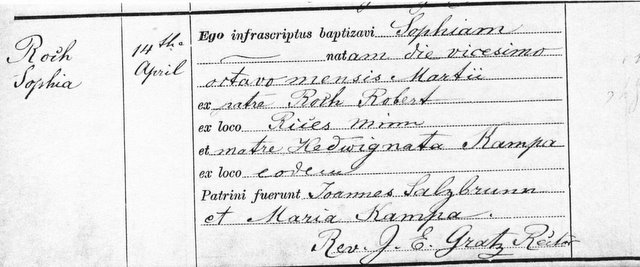 Roth
Sophia
14the
April
Ego infrascriptus baptizavi Sophiam
natam die vicesimo
octavo mensis Martii
ex patre Roth Robert
ex loco Rices Minn
et matre Hedwig nata Kampa
ex loco eodem
Patrini fuerunt Joannes Salzbrunn
et Maria Kampa.
Rev. J. E. Gratz Rector